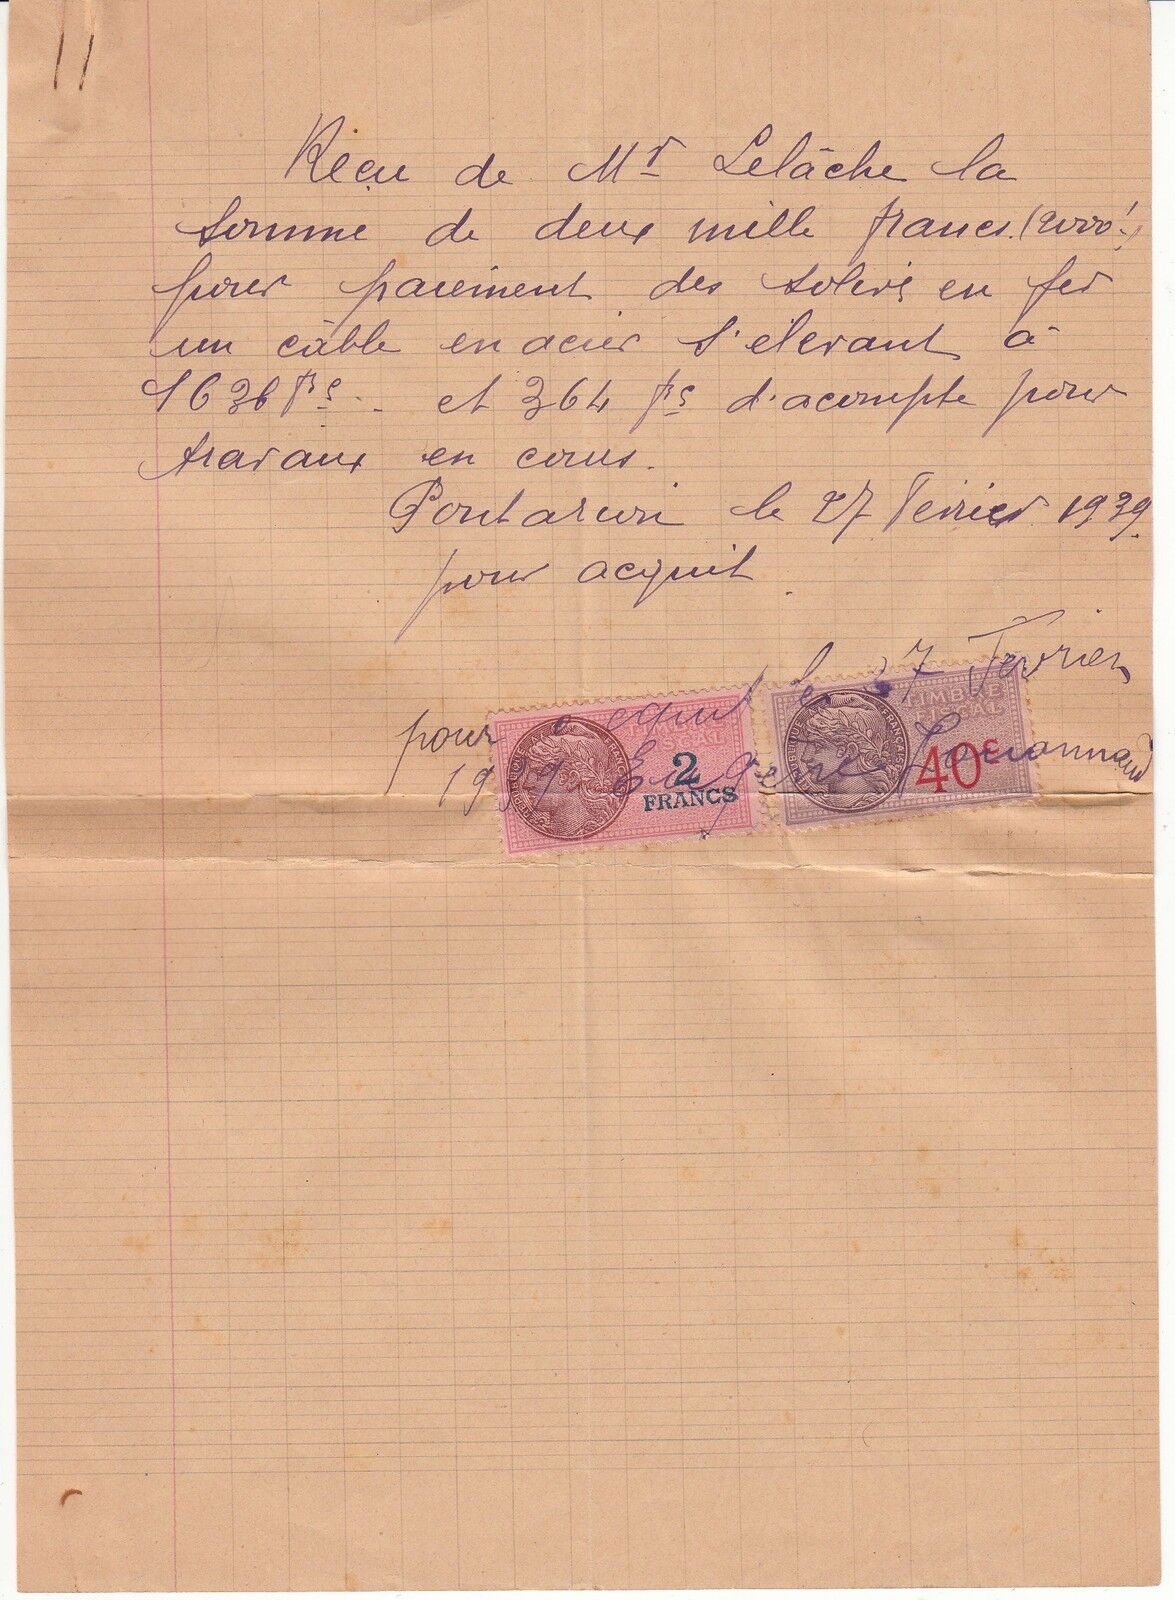 Reçu de Mr Lelâche la
somme de deux mille francs (2000f.)
pour paiement des solivs en fer
un câble en acier s'elevant à
1636 frs. et 364 frs d'acompte pour
travaux en cours.
Pontarion le 27 Fevrier 1939.
pour acquit
pour acquit le 27 Fevrier
1939 Eugene
TIMBRE FISCAL
2 FRANCS
REPUBLIQUE FRANÇAISE
TIMBRE FISCAL
40c
REPUBLIQUE FRANÇAISE